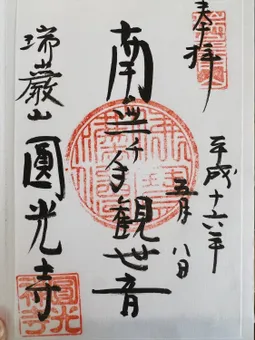 奉拝
平成十六年
五月八日
南無千手観世音
瑞巌山
圓光寺
圓光寺